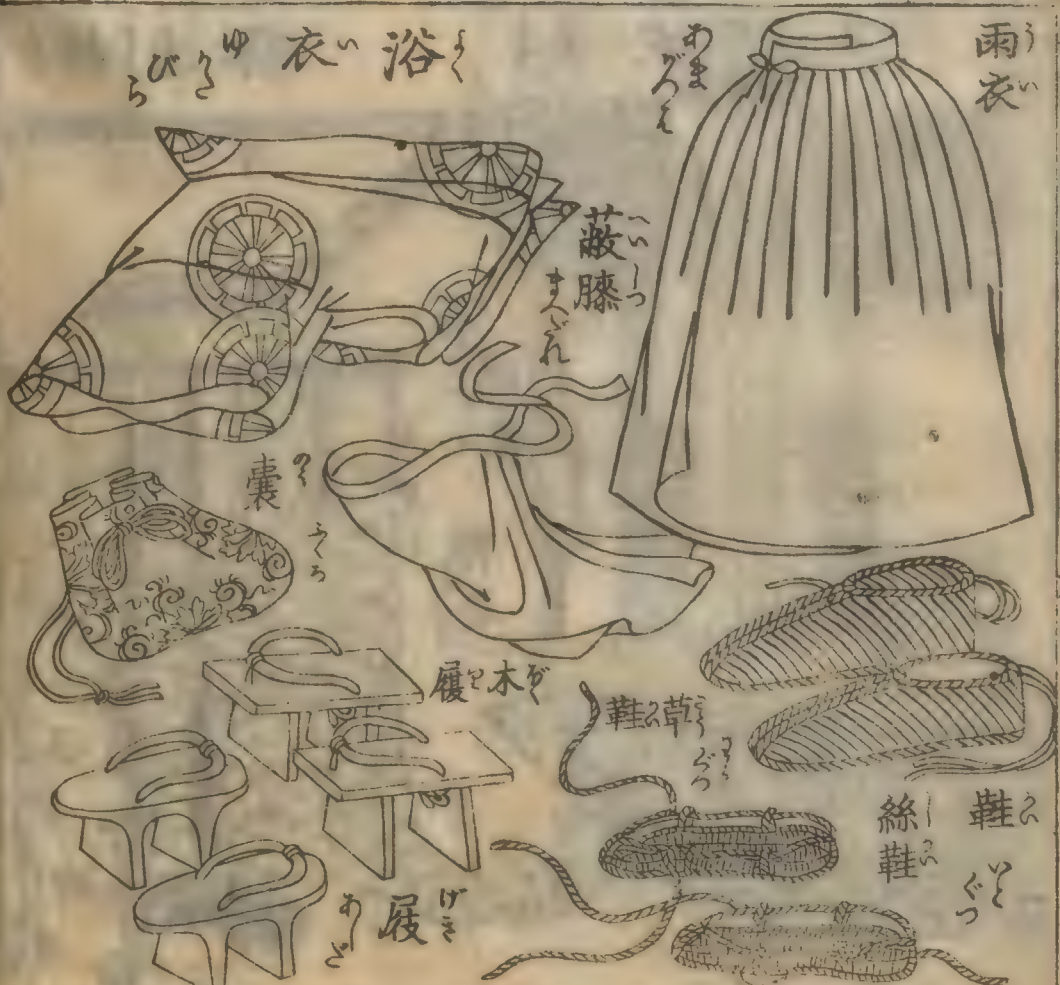 雨衣 うい
あまがつぱ
浴衣 よくい
ゆかたびら
蔽膝 へいしつ
まへだれ
嚢 のう
ふくろ
木履 ぼくり
草鞋 さうかい
わらぐつ
鞋 かい
絲鞋 しかい
いとぐつ
屐 げき
あしだ